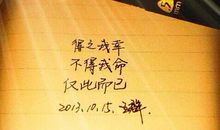 得之我幸
不得我命
仅此而已
2013.10.15.
5